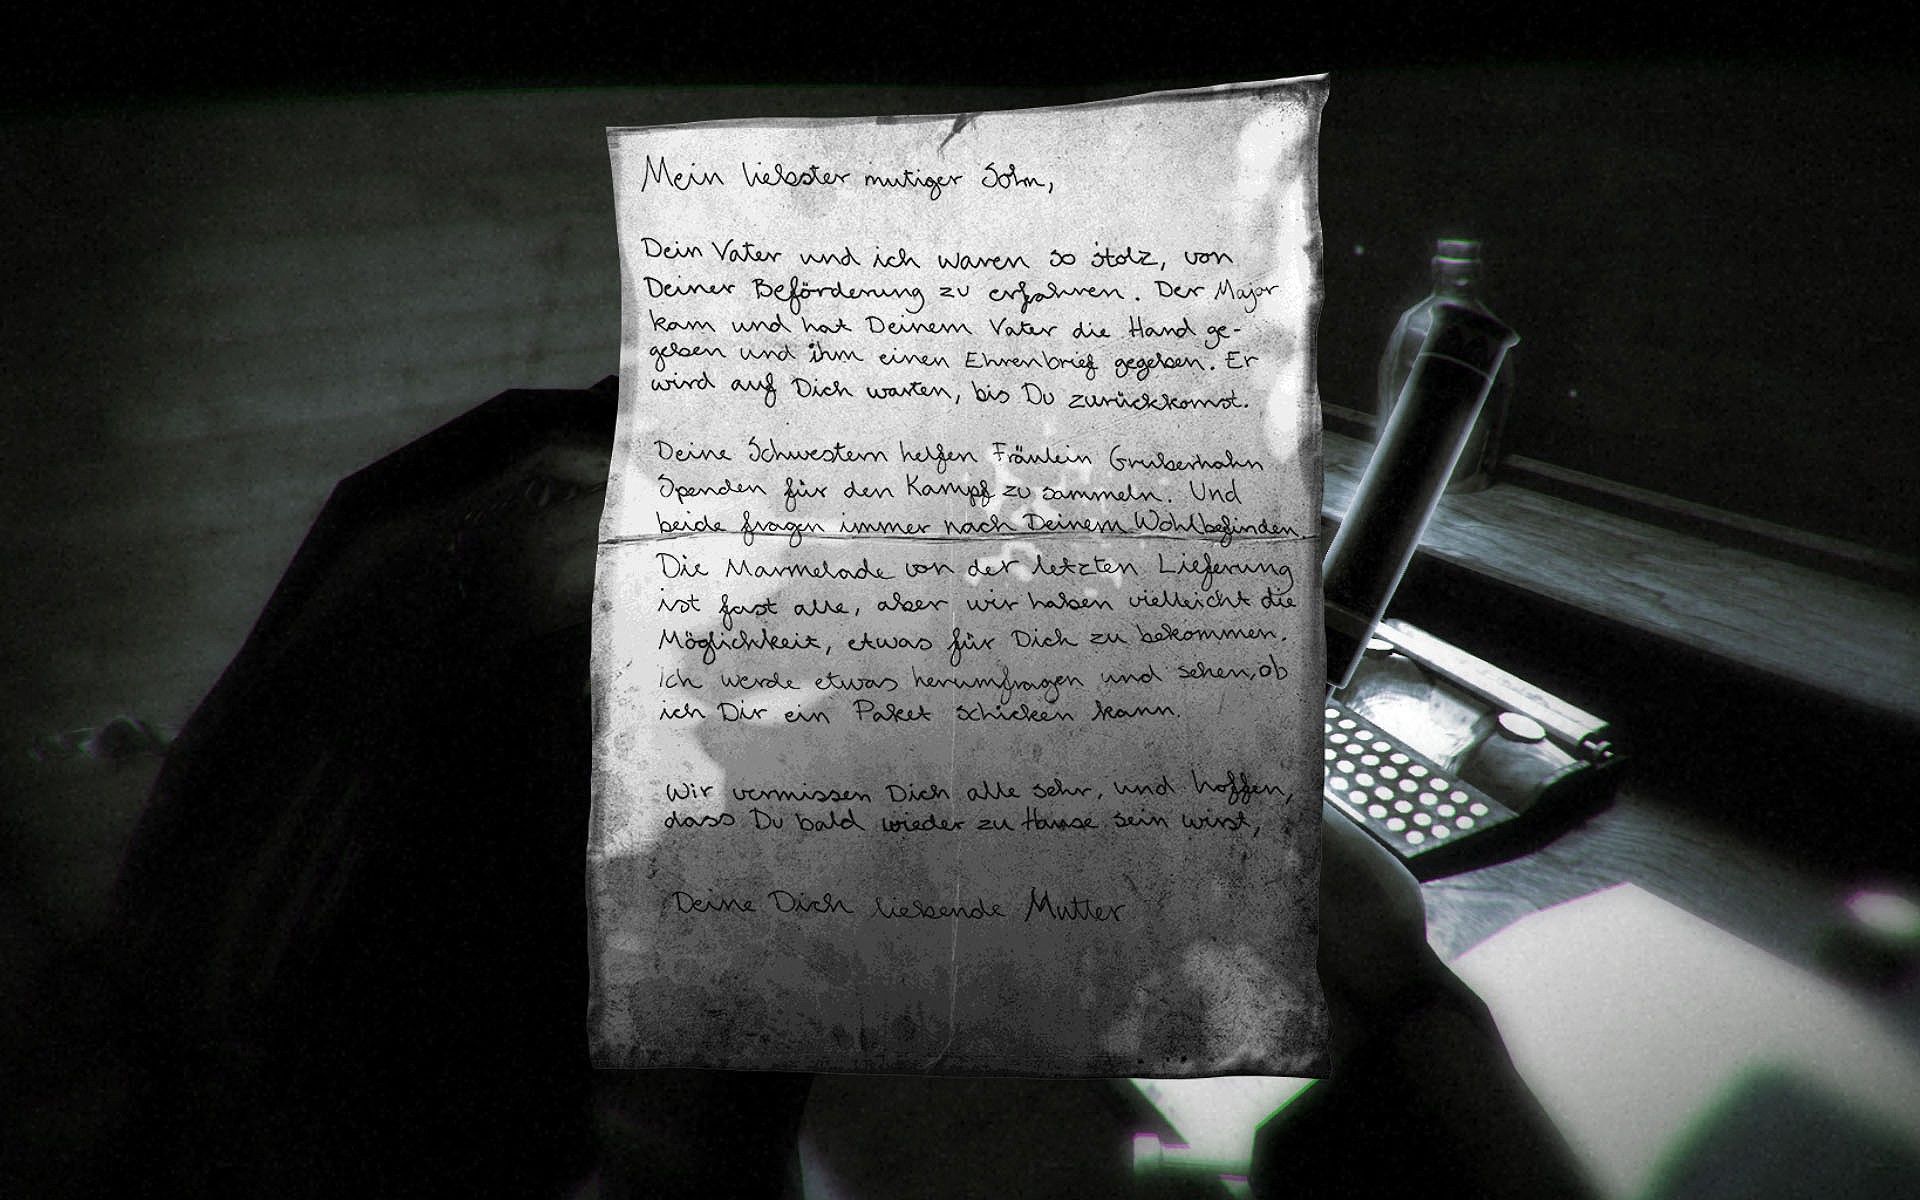 Mein liebster mutiger Sohn,
Dein Vater und ich waren so stolz, von
Deiner Beförderung zu erfahren. Der Major
kam und hat Deinem Vater die Hand ge-
geben und ihm einen Ehrenbrief gegeben. Er
wird auf Dich warten, bis Du zurückkomst.
Deine Schwestern helfen Fräulein Gruberhahn
Spenden für den Kampf zu sammeln. Und
beide fragen immer nach Deinem Wohlbefinden.
Die Marmelade von der letzten Lieferung
ist fast alle, aber wir haben vielleicht die
Möglichkeit, etwas für Dich zu bekommen.
Ich werde etwas herumfragen und sehen, ob
ich Dir ein Paket schicken kann.
Wir vermissen Dich alle sehr, und hoffen,
dass Du bald wieder zu Hause sein wirst,
Deine Dich liebende Mutter